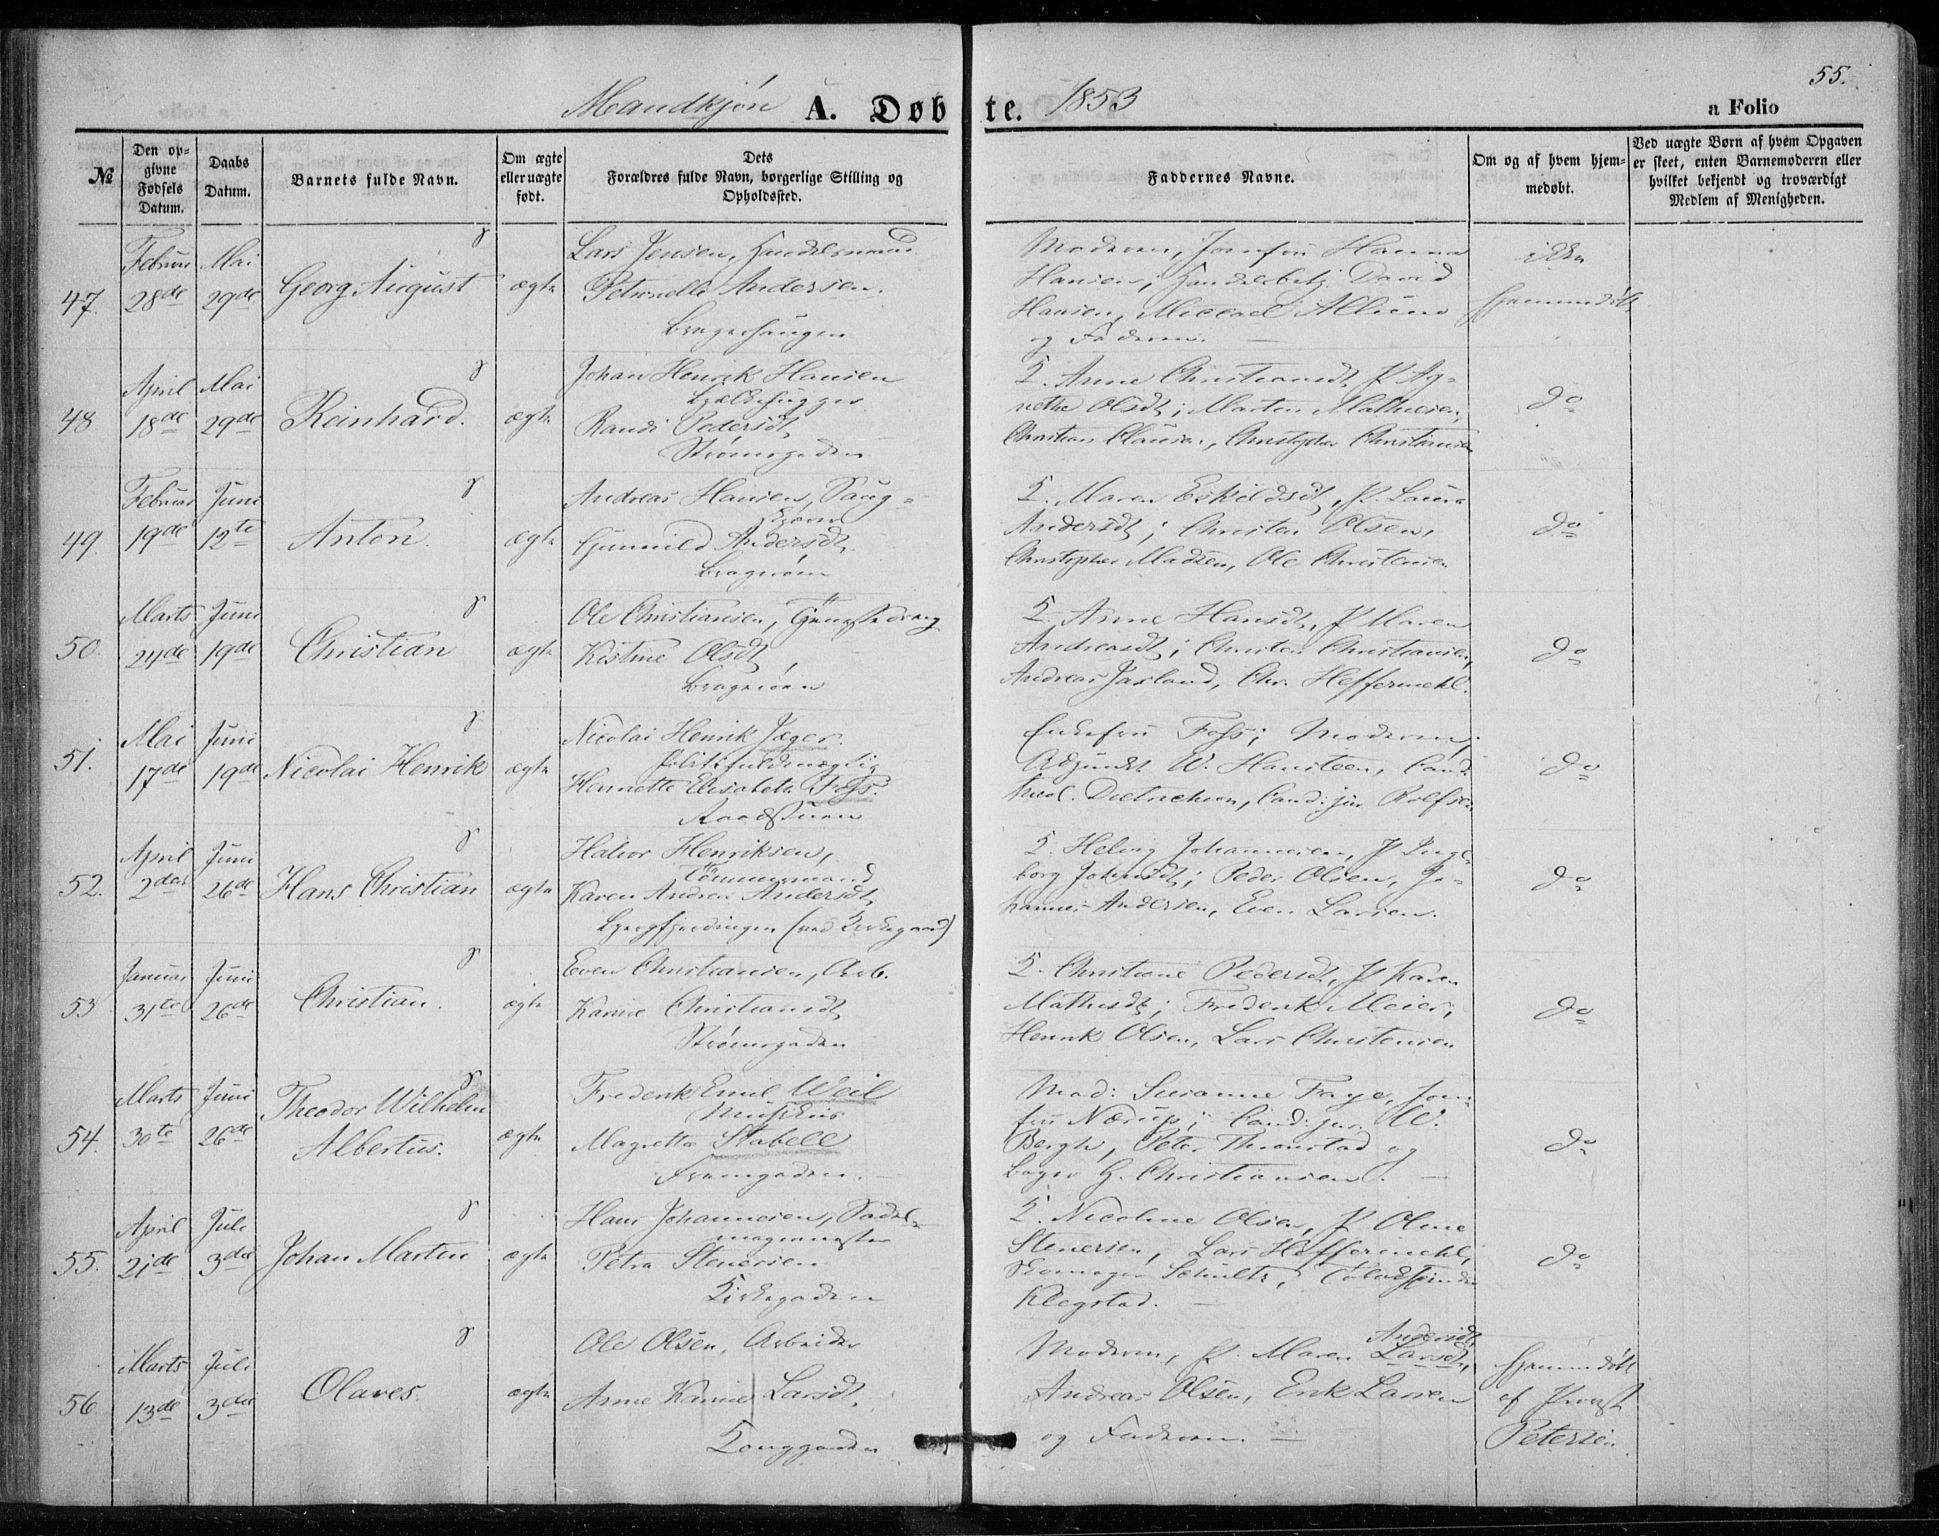 55.
Mandkjøn A. Døbte. 1853
a Folio
№ | Den opgivne Fødsels Datum. | Daabs Datum. | Barnets fulde Navn. | Om ægte eller uægte født. | Dets Forældres fulde Navn, borgerlige Stilling og Opholdssted. | Faddernes Navne. | Om og af hvem hjemmedøbt. | Ved uægte Børn af hvem Opgaven er skeet, enten Barnemoderen eller hvilket bekjendt og troværdigt Medlem af Menigheden.
Februar Mai Lars Jensen, Handelsmand Moderen, Jomfru Hanna ikke
47. 28de 29de Georg August ægte Petronella Andersen. Hansen; Handelsbetj. David
Hansen, Michael Allum hjemmedøbt
og Faderen.
April Mai Johan Henrik Hansen K. Anne Christiansdt, P. Ag-
48 18de 29de Reinhard. ægte Randi Pedersdt, nethe Olsdt; Marten Mathisen, do
Strømsgaden Christian Clausen, Christopher Christiansen
Februar Juni Andreas Hansen, Saug- K. Maren Eskildsdt, P. Laura
49. 19de 12te Anton. ægte Gunnild Andersdt, Andersdt; Christen Olsen, do
Bragerøen Christopher Madsen, Ole Christensen
Marts Juni Ole Christiansen, Tjenestedreng K. Anne Hansdt, P. Maren
50. 24de 19de Christian ægte Kistine Olsdt, Andreasdt; Christen Christiansen, do
Bragerøen Andreas Jarland, Chr. Heffermehl.
Mai Juni Nicolai Henrik Jæger. Enkefru Foss; Moderen,
51. 17de 19de Nicolai Henrik ægte Politifuldmægtig Adjunkt W. Hansteen, Cand.
Henriette Elisabeth Foss. theol. Dietrichson, Cand: jur Rolfsen
Raadstuen
April Juni Halvor Henriksen, K. Helvig Johannesen, P. Inge-
52. 2den 26de Hans Christian ægte Tømmermand borg Johnsdt; Peder Olsen, Jo- do
Karen Andrea Andersdt, hannes Andersen, Even Larsen.
Bjergfjerdingen (ved Kirkegaard)
Januar Juni Even Christiansen, Arb. K. Christiane Pedersdt, P. Karen
53 31te 26de Christian. ægte Karine Christiansdt, Mathisdt; Frederik Meier, do
Strømsgaden Henrik Olsen, Lars Christensen
Marts Juni Theodor Wilhelm Frederik Emil Weil Mad: Susanne Faye, Jom-
54. 30te 26de Albertus. ægte Musikus fru Nærup; Cand: jur. W.
Magrette Stabell Bergh, Peter Thronstad og do
Bager G. Christiansen.
April Juli Hans Johannesen, Sadel- K. Nicoline Olsen, P. Oline
55. 21de 3die Johan Martin ægte magermester Stenersen, Lars Heffermehl, do
Petra Stenersen Skomager Schultz, Toldbetjent
Kirkegaden Klegstad.
Marts Juli Ole Olsen, Arbeider Moderen, P. Maren Larsdt, Andersdt, hjemmedøbt
56 13de 3die Olaves. ægte Anne Karine Larsdt, Andreas Olsen, Erik Larsen af Provst
Konggaden og Faderen. Petersen